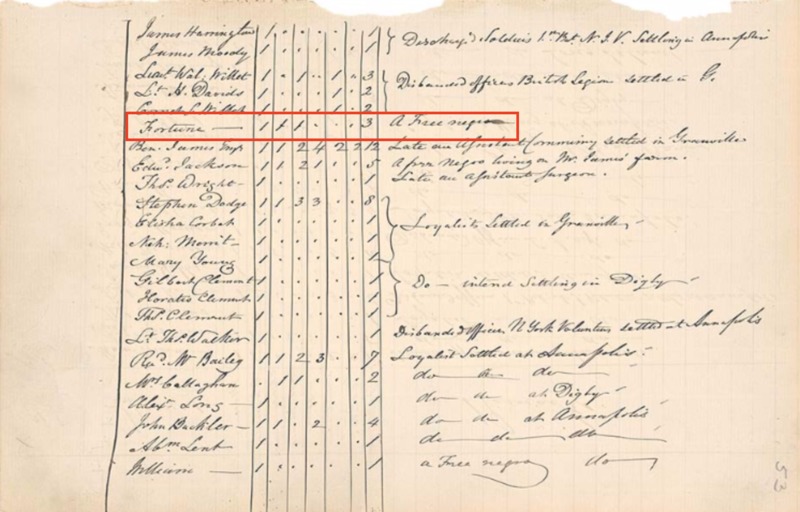 James Harrington 1 . . . . . 1 Discharg'd Soldiers 1st Bt. N. J. V. Settling in Annapolis
James Moody 1 . . . . . 1
Lieut. Wal. Willet 1 . 1 . . 1 . 3 Disbanded officers British Legion settled in G.
Lt. H. Davids 1 . . . . 1 . 2
Cornet S. Willet 1 . . . . 1 . 2
Fortune — 1 1 1 . . . 3 A Free negro
Ben. James Esqr 1 1 2 4 2 2 12 Late an Assistant Commissy settled in Granville
Edwd. Jackson 1 1 2 1 . . 5 A free Negro living on Mr. James' farm.
Thos. Wright — 1 . . . . . 1 Late an Assistant Surgeon.
Stephen Dodge 1 1 3 3 . . 8
Elisha Corbet 1 . . . . . 1 Loyalists Settled in Granville
Neh. Merrit — 1 . . . . . 1
Mary Young 1 . . . . . 1
Gilbert Clement 1 . . . . . 1 Do — intend Settling in Digby
Horatio Clement 1 . . . . . 1
Thos. Clement 1 . . . . . 1
Lt. Thos. Walker 1 . . . . . 1 Disbanded Officer N York Volunteers settled at Annapolis
Revd. Mr Bailey 1 1 2 3 . . 7 Loyalist Settled at Annapolis
Mrs Callaghan . 1 1 . . . 2 do do do
Alexr. Long — 1 . . . . . 1 do do at Digby
John Buckler — 1 1 . 2 . . 4 do do at Annapolis
Abm Lent 1 . . . . . 1 do do do
William — 1 . . . . . 1 a Free negro do
53